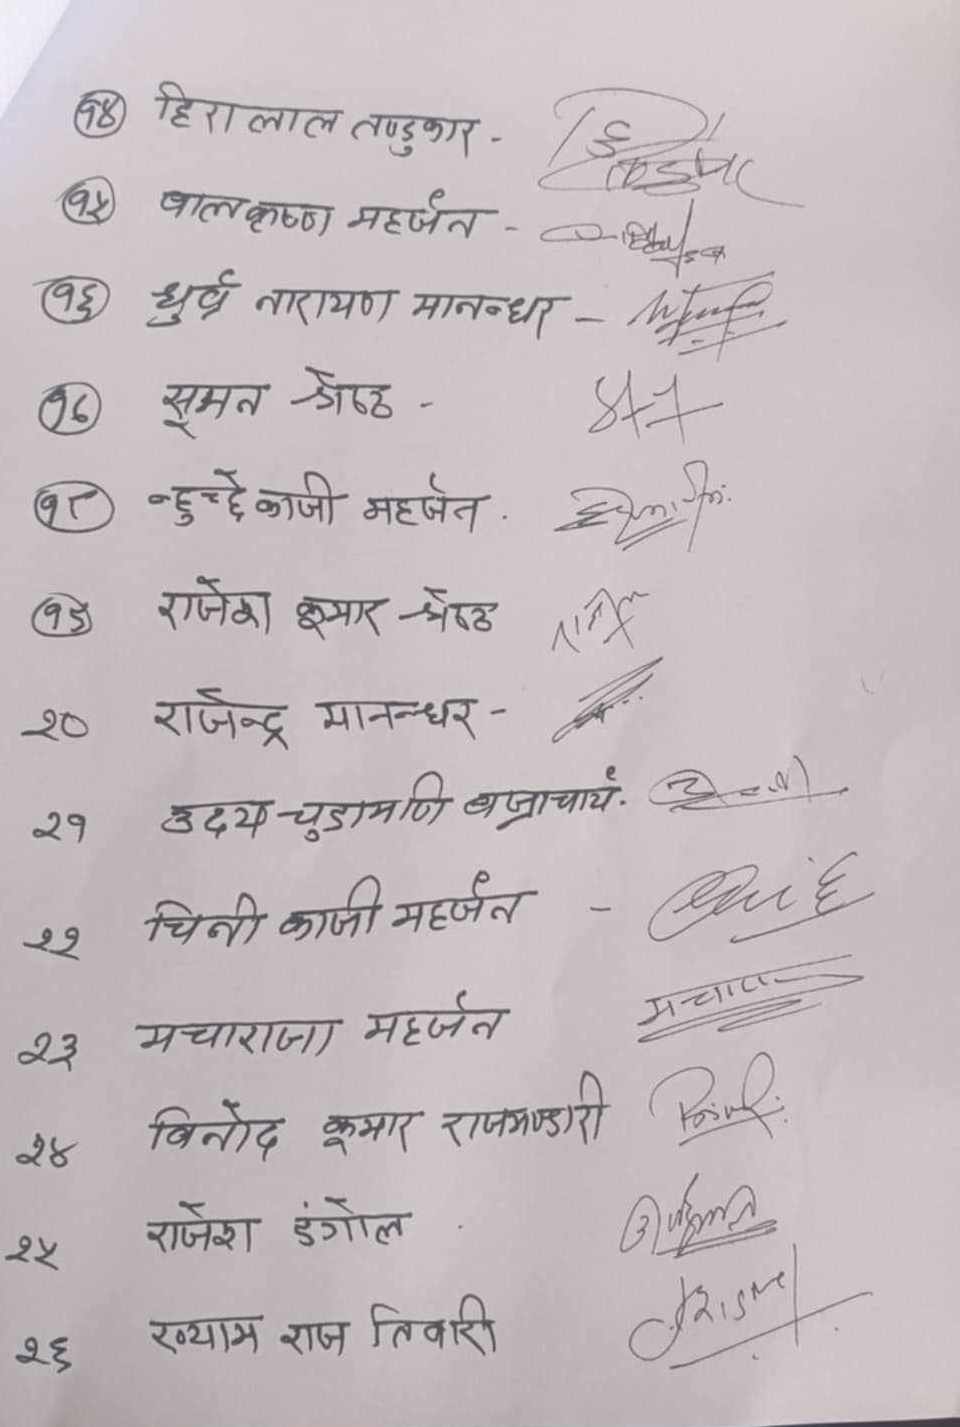 १४ हिरालाल तण्डुकार -
१५ बालकृष्ण महर्जन -
१६ ध्रुर्व नारायण मानन्धर -
१७ सूमन श्रेष्ठ -
१८ न्हुच्छे काजी महर्जन .
१९ राजेश कुमार श्रेष्ठ
२० राजेन्द्र मानन्धर -
२१ उदय चुडामणि बज्राचार्य .
२२ चिनी काजी महर्जन -
२३ मचाराजा महर्जन
२४ बिनोद कुमार राजभण्डारी
२५ राजेश डंगोल
२६ राज तिवारी